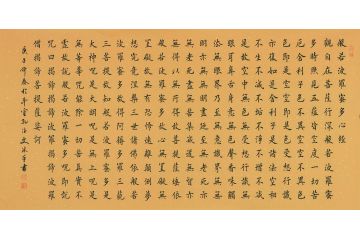 般若波羅蜜多心經
觀自在菩薩行深般若波羅蜜
多時照見五蘊皆空度一切苦
厄舍利子色不異空空不異色
色即是空空即是色受想行識
亦復如是舍利子是諸法空相
不生不滅不垢不淨不增不減
是故空中無色無受想行識無
眼耳鼻舌身意無色聲香味觸
法無眼界乃至無意識界無無
明亦無無明盡乃至無老死亦無
老死盡無苦集滅道無智亦
無得以無所得故菩提薩埵依
般若波羅蜜多故心無罣礙無
罣礙故無有恐怖遠離顛倒夢
想究竟涅槃三世諸佛依般若
波羅蜜多故得阿耨多羅三藐
三菩提故知般若波羅蜜多是
大神咒是大明咒是無上咒是
無等等咒能除一切苦真實不
虛故說般若波羅蜜多咒即說
咒曰揭諦揭諦波羅揭諦波羅
僧揭諦菩提薩婆訶
庚子仲春於書